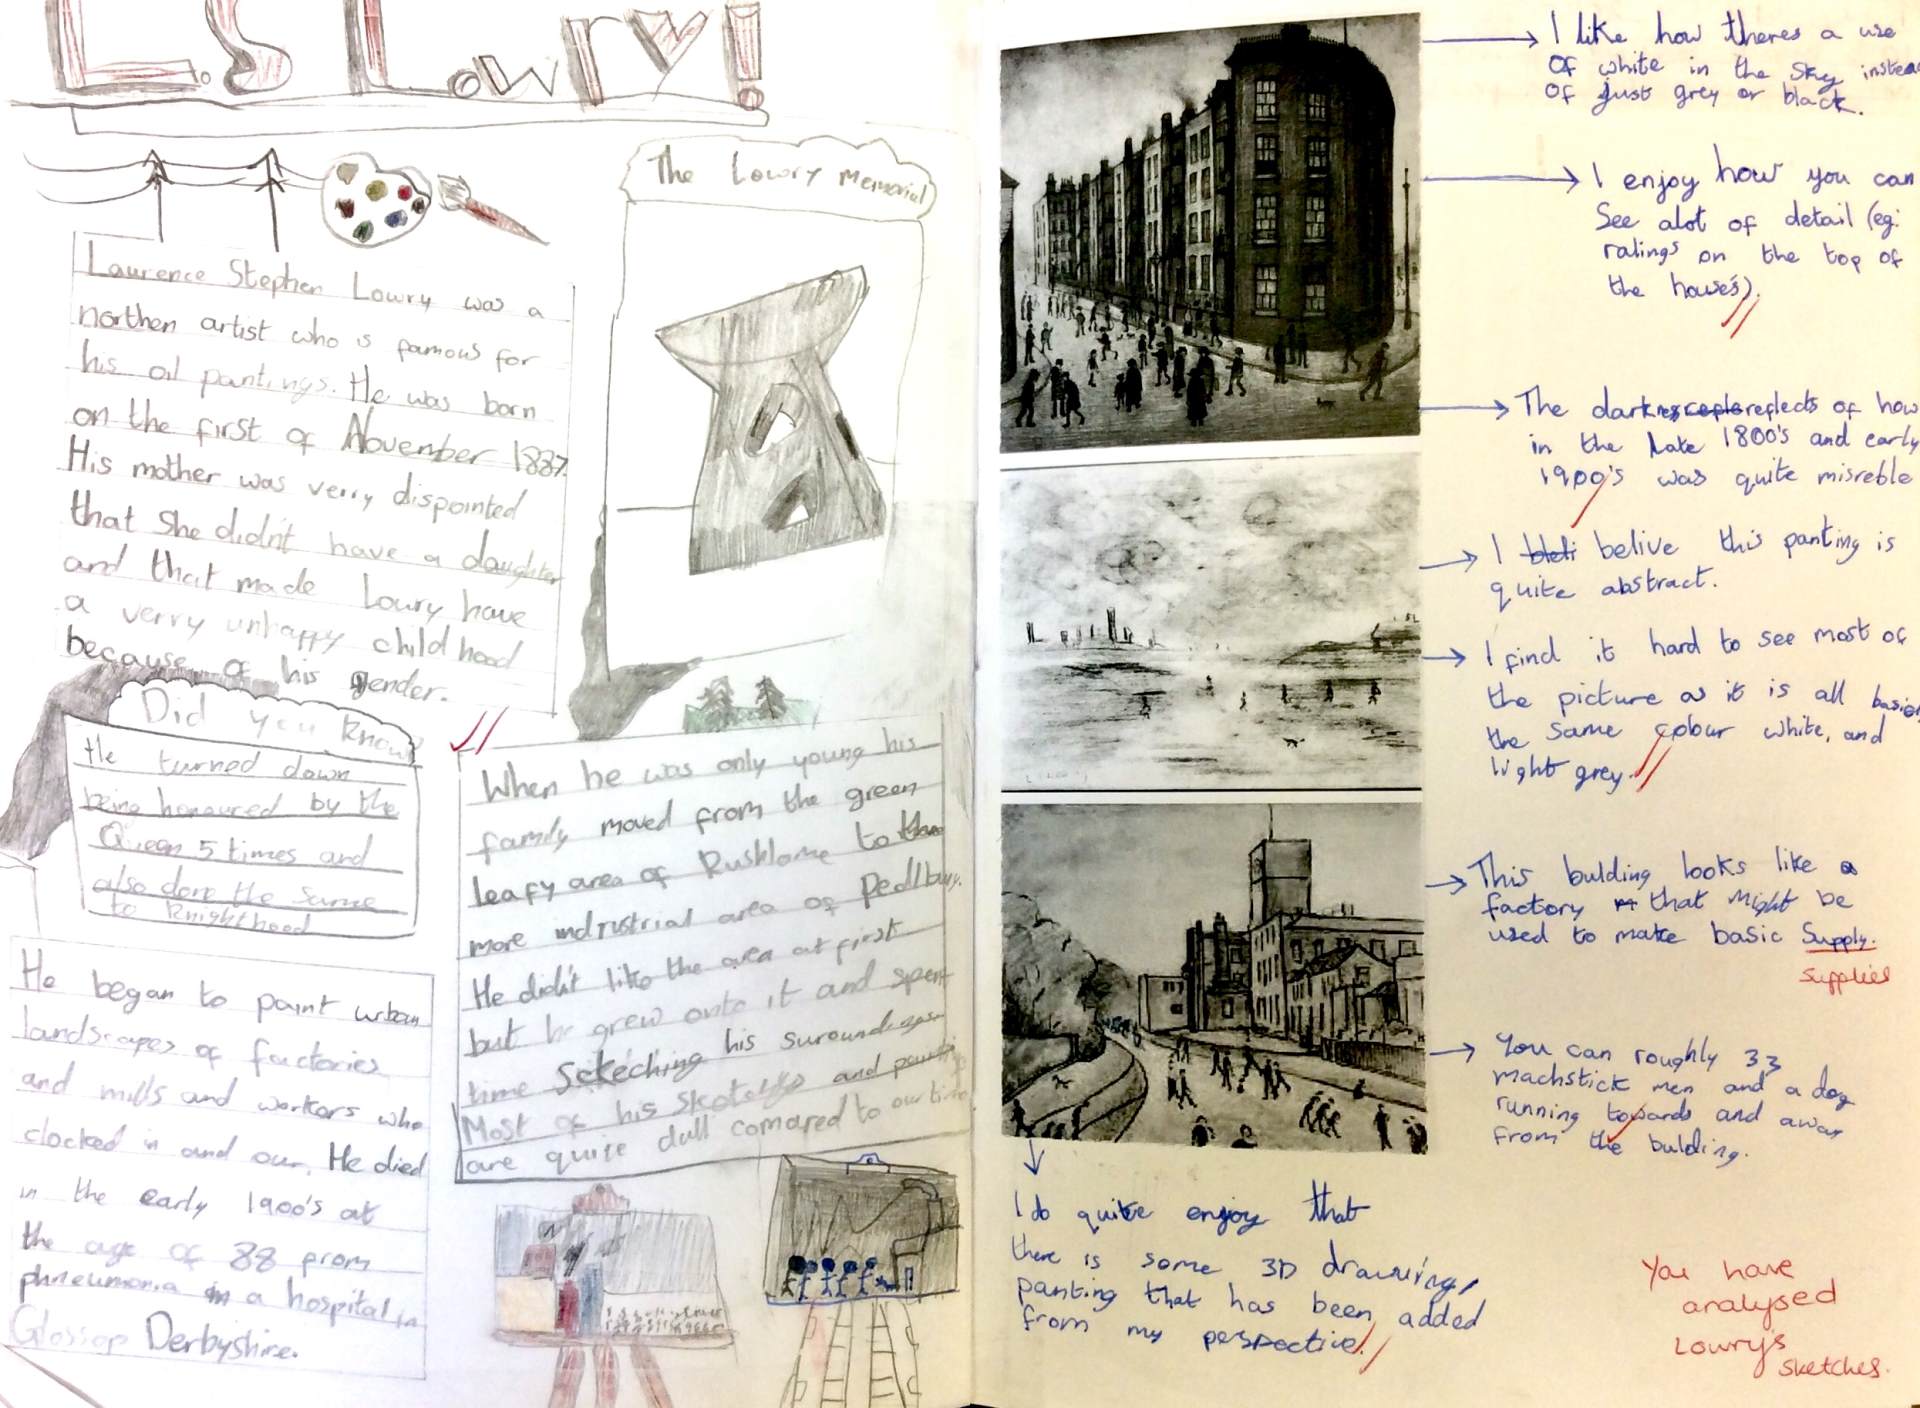 L.S Lowry!
Lawrence Stephen Lowry was a
northen artist who is famous for
his oil pantings. He was born
on the first of November 1887.
His mother was verry dispointed
that she didn't have a daughter
and that made Lowry have
a verry unhappy childhood
because of his gender.
The Lowry Memorial
Did you know?
He turned down
being honoured by the
Queen 5 times and
also done the same
to Knighthood
When he was only young his
family moved from the green
leafy area of Rushlome to
more indrustrial area of Pedlbury.
He didn't like the area at first
but he grew onto it and spent
time Scteching his
Most of his and
are quite dull comared to our time
He began to paint urban
landscapes of factories
and mills and workers who
clocked in and our. He died
in the early 1900's at
the age of 88 from
phneumonia in a hospital in
Glossop Derbyshire.
I like how theres a use
Of white in the sky instea
Of just grey or black.
I enjoy how you can
See alot of detail (eg:
ralings on the top of
the house's).
The darkness reflects of how
in the late 1800's and early
1900's was quite misreble
I belive this panting is
quite abstract.
I find it hard to see most of
the picture as it is all
the same colour white, and
light grey.
This bulding looks like a
factory that might be
used to make basic Supply.
supplies
You can roughly 33
machstick men and a dog
running towards and away
from the bulding.
I do quite enjoy that
there is some 3D drawring/
panting that has been added
from my perspective.
You have
analysed
Lowry's
sketches.